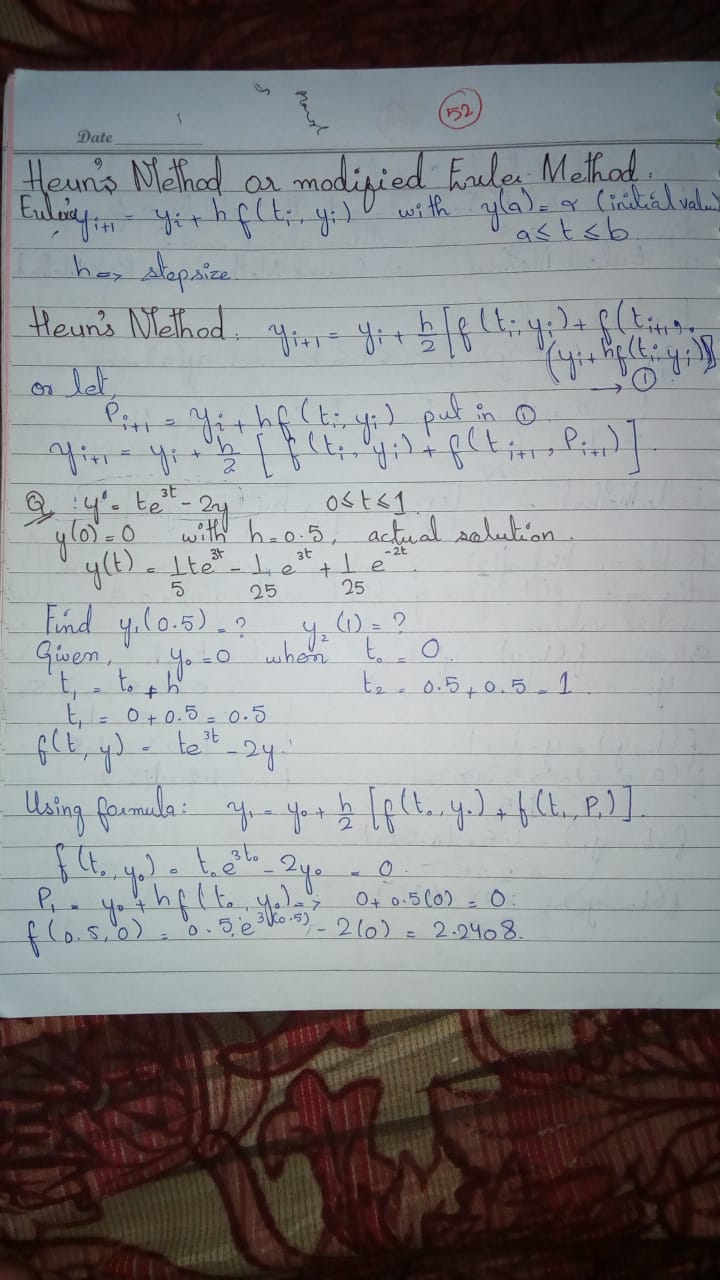 52
Date
Heun's Method or modified Euler Method.
Euler's y_{i+1} = y_i + h f(t_i, y_i) with y(a) = α (initial value)
a ≤ t ≤ b
h => stepsize.
Heun's Method: y_{i+1} = y_i + h/2 [f(t_i, y_i) + f(t_{i+1},
(y_i + hf(t_i, y_i))]
→ ①
or let,
P_{i+1} = y_i + hf(t_i, y_i) put in ①
y_{i+1} = y_i + h/2 [f(t_i, y_i) + f(t_{i+1}, P_{i+1})].
Q : y' = te^{3t} - 2y 0 ≤ t ≤ 1
y(0) = 0 with h = 0.5, actual solution.
y(t) = 1/5 te^{3t} - 1/25 e^{3t} + 1/25 e^{-2t}.
Find y_1(0.5) = ? y_2(1) = ?
Given, y_0 = 0 when t_0 = 0.
t_1 = t_0 + h t_2 = 0.5 + 0.5 = 1.
t_1 = 0 + 0.5 = 0.5
f(t, y) = te^{3t} - 2y.
Using formula: y_1 = y_0 + h/2 [f(t_0, y_0) + f(t_1, P_1)].
f(t_0, y_0) = t_0 e^{3t_0} - 2y_0 = 0.
P_1 = y_0 + hf(t_0, y_0) => 0 + 0.5(0) = 0.
f(0.5, 0) = 0.5 e^{3(0.5)} - 2(0) = 2.2408.